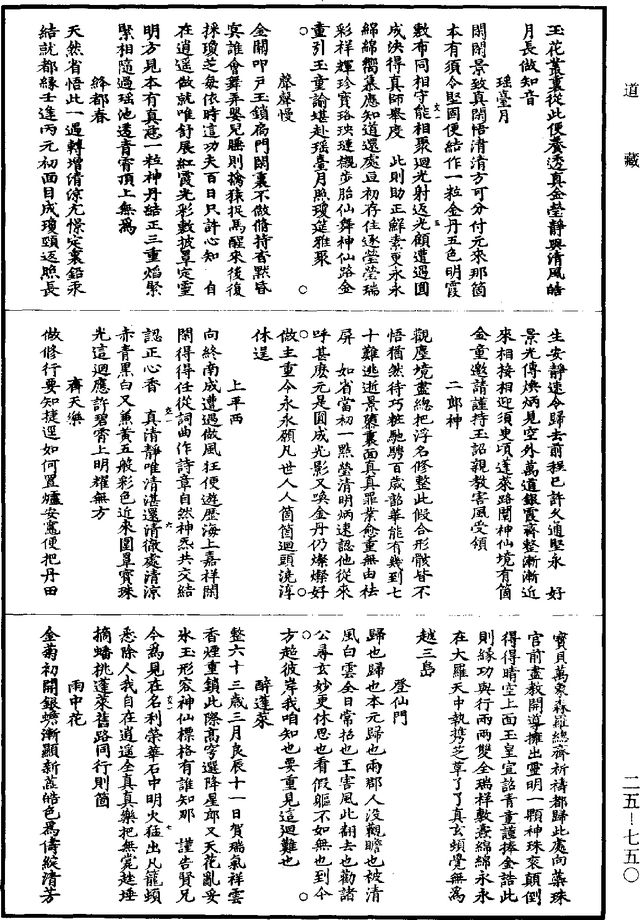 道藏
玉花叢裏從此便養透真金瑩靜與清風皓
月長做知音
瑤臺月
閑閑景致真閑悟清清方可分付元來那箇
本有須令堅固便結作一粒金丹五色明霞
敷布同相守能相聚迴光射返光顧遭遇圓
成決得真師舉度 此則助正鮮素更永永
綿綿嚮慕應知道還處亘初存住逐瑩瑩瑞
彩祥輝珍寶珞璉襯步胎仙舞神仙路金
重引玉童諭堪赴瑤臺月照瓊筵雅聚
聲聲慢
金關叩戶玉鎖扃門閑裏不做脩持杳默昏
冥誰會舞弄嬰兒睡則擒猿捉馬醒來後復
採瓊芝每依時這功夫百日只許心知 自
在逍遙做就唯舒展紅霞光彩敷披罩定靈
明方見本有真慈一粒神丹結正三重焰緊
緊相隨過瑤池透青霄頂上無爲
絳都春
天然省悟此一遇轉增清涼尤憬定裏鉛汞
結就都緣壬逢丙元初面目成瓊頸返照長
生安靜速令歸去前程已許久通堅永 好
景光傳煥炳見空外萬道銀霞齊整漸漸近
來相接相迎須臾頃蓬萊路闊神仙境有箇
金童邀請謹持玉詔親教害風受領
二郎神
觀塵境盡總把浮名修整此假合形骸皆不
悟猶然待巧粧馳騁百歲韶華能有幾到七
十難逃逝景叢裏面真真罪業愈重無由祛
屏 如省當初一點瑩清明炳速認他從來
呼甚麽元是圓成光影又喚金丹仍燦燦好
做主重令永永願凡世人人箇箇迴頭澆淳
休逞
上平西
向終南成遭遇做風狂便遊歷海上嘉祥閑
閑得得任從詞曲作詩章自然神炁共交結
認正心香 真清靜唯清湛還清徹處清涼
赤青黑白又兼黃五般彩色近來圍罩寶珠
光這迴應許碧霄上明耀無方
齊天樂
做修行要知捷逕如何置爐安竈便把丹田
寶貝萬象森羅總齊祈禱都歸此處向蘂珠
官前盡教開導擁出靈明一顆神珠衮顛倒
得得晴空上面玉皇宣詔青童護捧金誥此
則緣功與行兩兩雙全瑞祥敷燾綿綿永永
在大羅天中執携芝草了了真玄頓覺無爲
越三島
登仙門
歸也歸也本元歸也兩郡人沒觀瞻也被清
風白雲全日常招也王害風此翻去也勸諸
公尋玄妙更休思也看假軀不如無也到今
方超彼岸我咱知也要重見這迴難也
醉蓬萊
整六十三歲三月良辰十一日賀瑞氣祥雲
香煙重鎖此際高穹選降星郎又天花亂妥
氷玉形容神仙標格有誰知那 謹告賢兄
今爲見在名利榮華石中明火猛出凡籠頓
悉除人我自在逍遙全真真樂把無竟越埵
摘蟠桃蓬萊舊路同行則箇
雨中花
金菊初開銀蟾漸顯新蘂皓色爲儔綻清芳
二五-七五〇